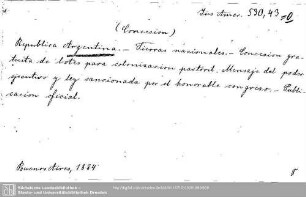 Jus Amer. 530,43
(Concesion)
Republica Argentina. – Tierras nacionales. – Concesion gra-
tuita de lotes para colonizacion pastoril. Mensaje del poder
ejecutivo y ley sancionada por el honorable congreso. – Publi-
cacion oficial.
Buenos Aires, 1884
8
Sächsische Landesbibliothek –
Staats- und Universitätsbibliothek Dresden